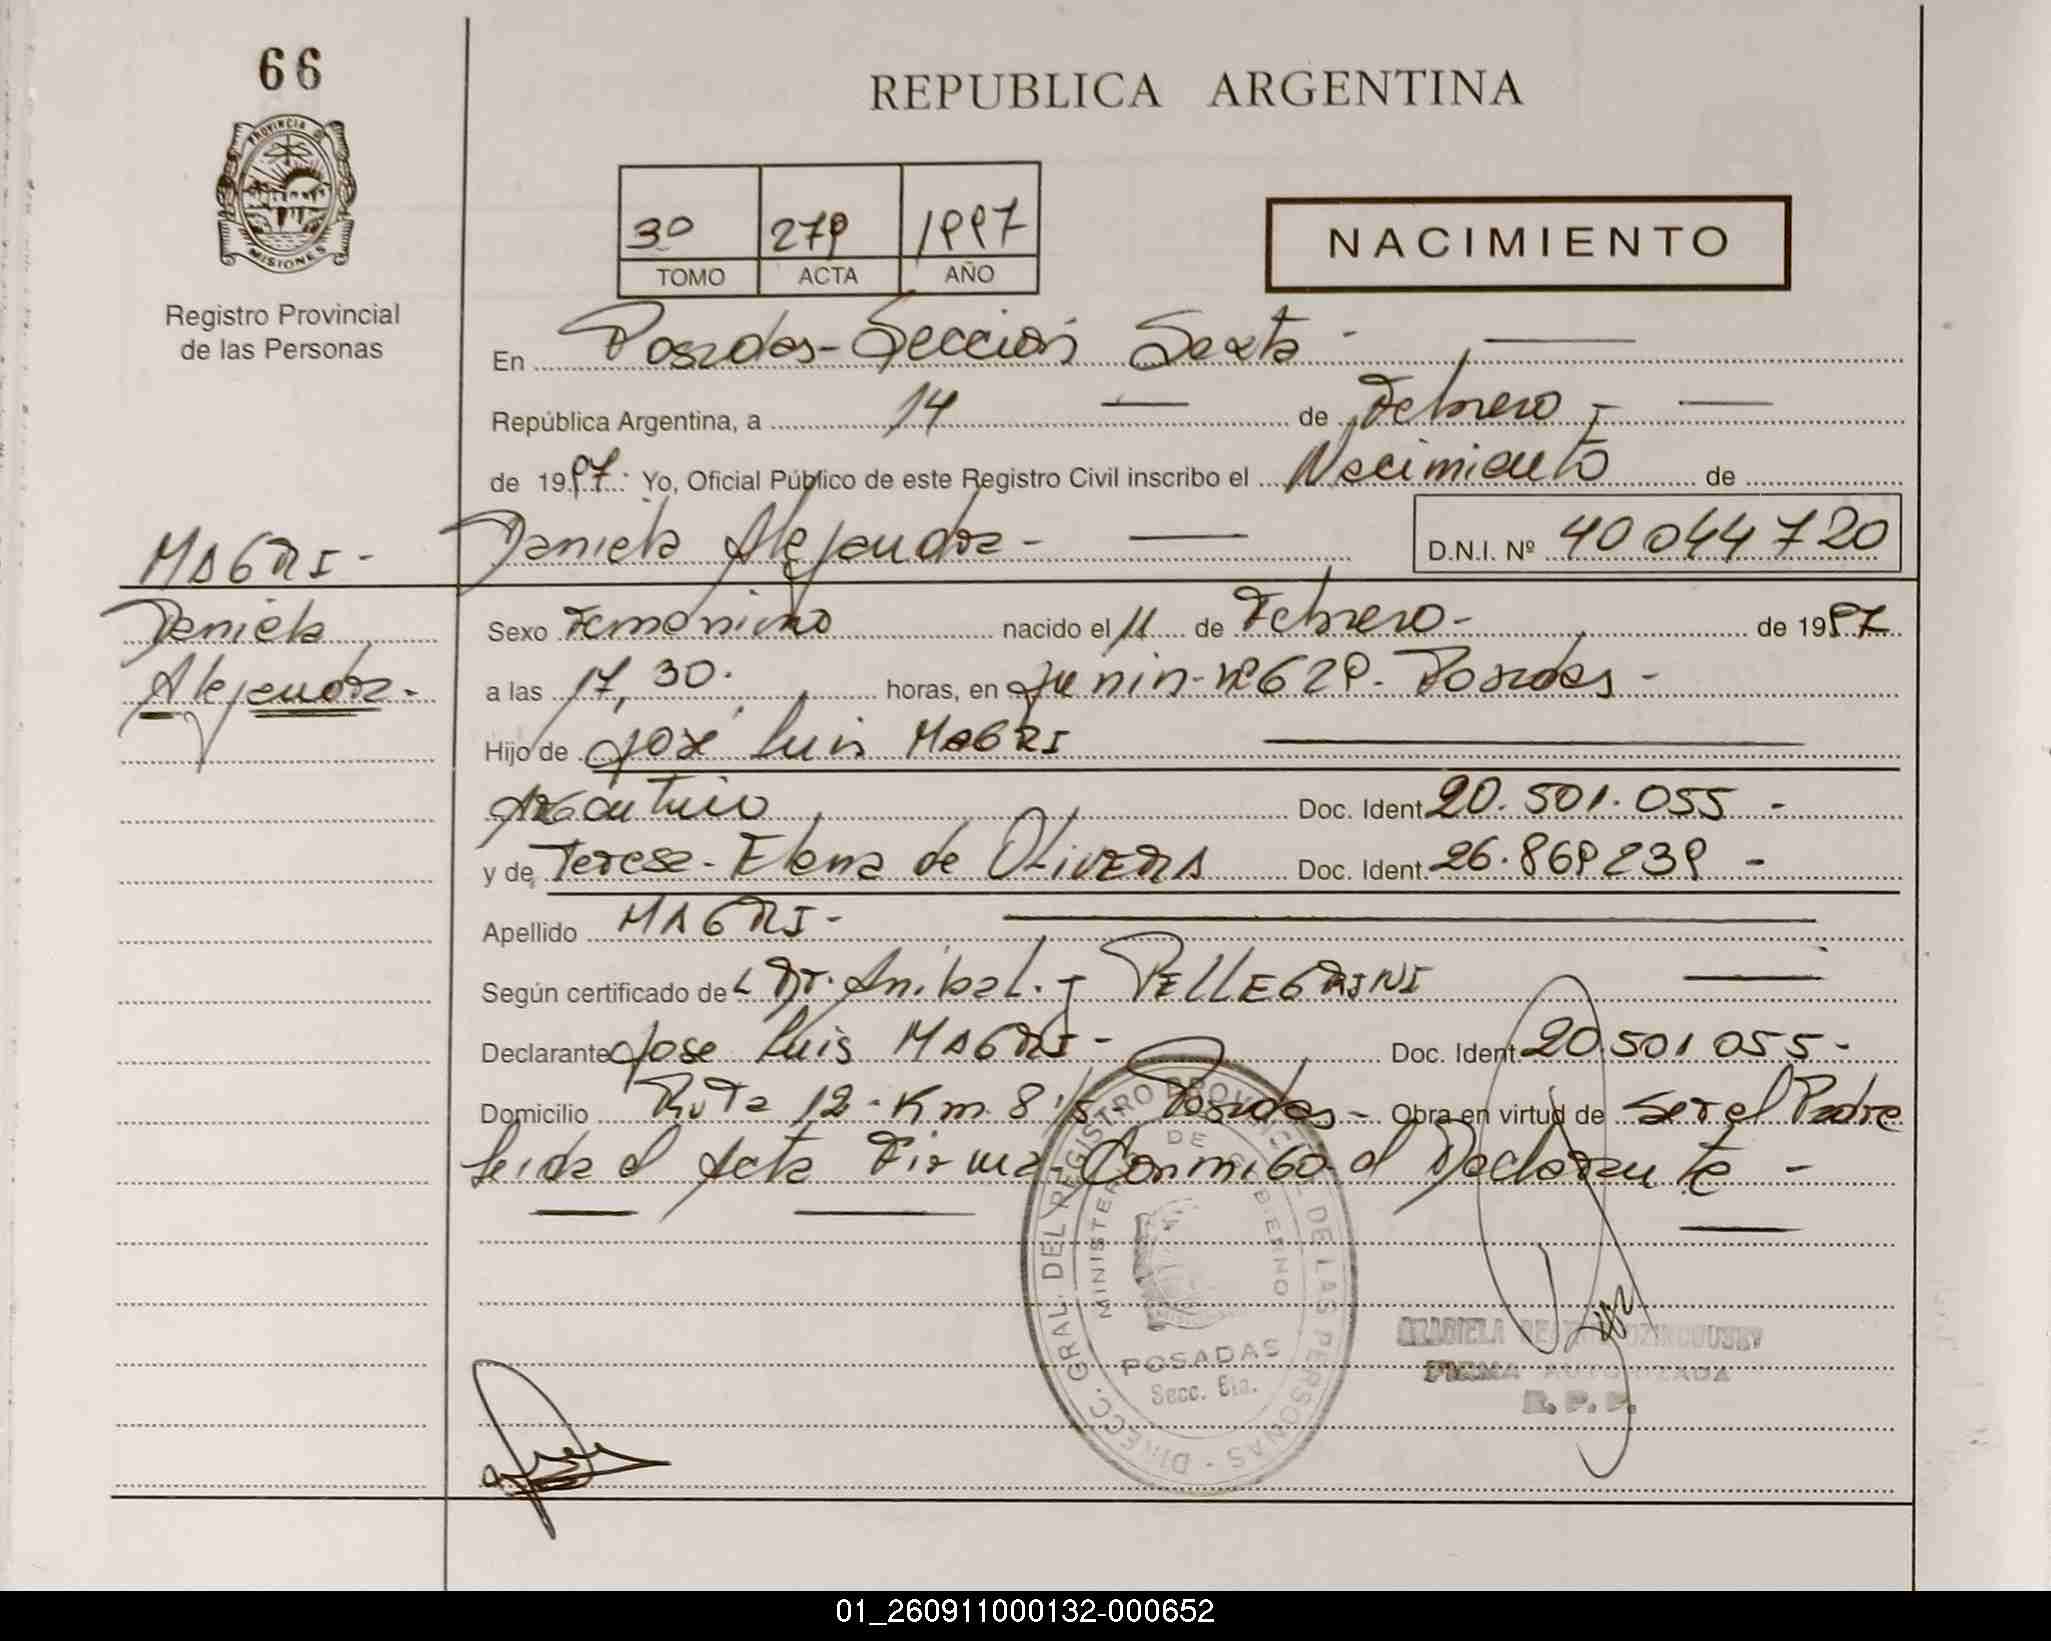 66
REPUBLICA ARGENTINA
PROVINCIA D
MISIONES
Registro Provincial
de las Personas
3º 279 1997
TOMO ACTA AÑO
NACIMIENTO
En Posadas - Sección Sexta -
República Argentina, a 14 de Febrero -
de 1997 Yo, Oficial Público de este Registro Civil inscribo el Nacimiento de
Daniela Alejandra - D.N.I. Nº 40 044 720
MAGRI -
Daniela
Alejandra -
Sexo Femenino nacido el 11 de Febrero - de 1997
a las 17,30. horas, en Junin - Nº 629 - Posadas -
Hijo de José Luis MAGRI
Argentino Doc. Ident. 20.501.055 -
y de Teresa - Elena de OLIVERA Doc. Ident. 26.869239 -
Apellido MAGRI -
Según certificado de Dr. Anibal. J PELLEGRINI
Declarante Jose Luis MAGRI - Doc. Ident. 20.501 055 -
Domicilio Ruta 12 - Km 8 1/2 - Posadas - Obra en virtud de Ser el Padre
Leida el Acta Firma Conmigo el Declarante -
DIRECC. GRAL. DEL REGISTRO PROVINCIAL DE LAS PERSONAS
MINISTERIO DE GOBIERNO
POSADAS
Secc. 6ta.
GRACIELA
FIRMA AUTORIZADA
R. P. P.
01_260911000132-000652